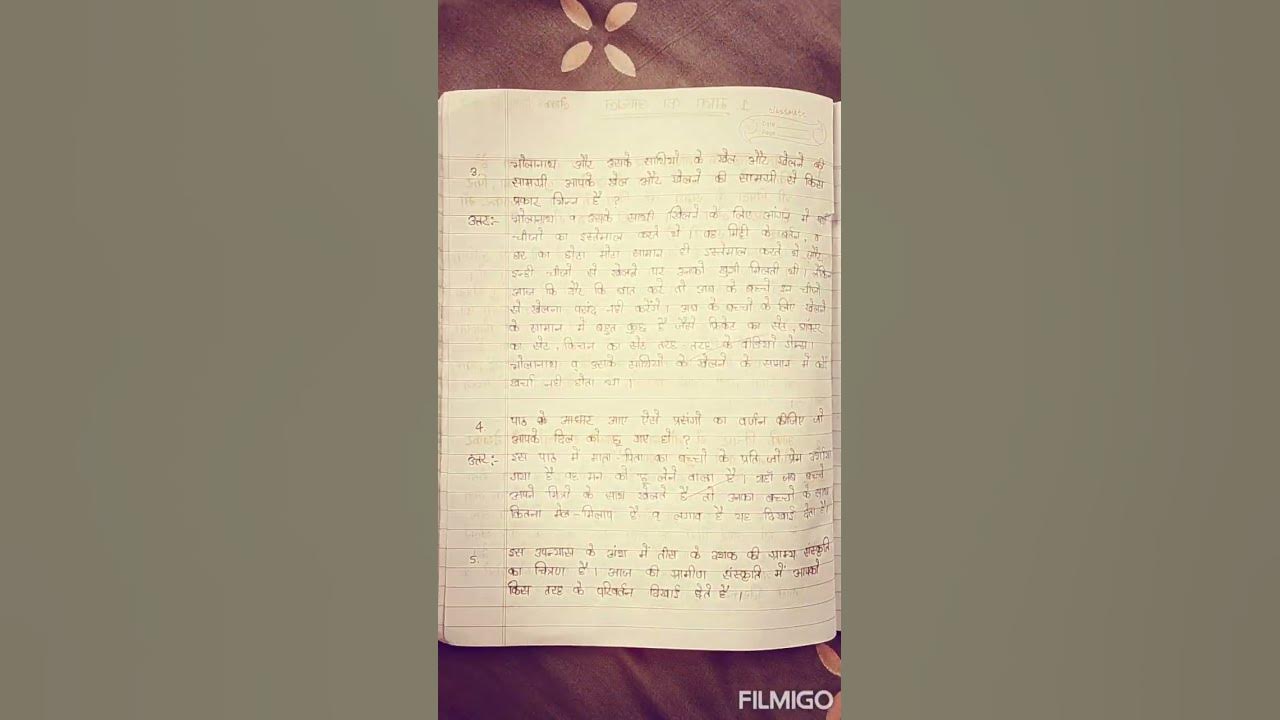 classmate
Date
Page
3. भोलानाथ और उसके साथियों के खेल और खेलने की
सामग्री आपके खेल और खेलने की सामग्री से किस
प्रकार भिन्न है ?
उत्तर:- भोलानाथ व उसके साथी खेलने के लिए आंगन में
चीजो का इस्तेमाल करते थे । वह मिट्टी के बर्तन, व
घर का छोटा मोटा सामान ही इस्तेमाल करते थे और
इन्ही चीजो से खेलने पर उनको खुशी मिलती थी । लेकिन
आज कि दौर कि बात करे तो अब के बच्चे इन चीजो
से खेलना पसंद नही करेंगे । अब के बच्चो के लिए खेलने
के सामान में बहुत कुछ है जैसे क्रिकेट का सेट, डॉक्टर
का सेट, किचन का सेट तरह-तरह के वीडियो गेम्स।
भोलानाथ व उसके साथियों के खेलने के समान में कोई
खर्चा नही होता था ।
4. पाठ के आधार आए ऐसे प्रसंगो का वर्णन कीजिए जो
आपके दिल को छू गए हो ?
उत्तर:- इस पाठ में माता-पिता का बच्चो के प्रति जो प्रेम दर्शाया
गया है वह मन को छू लेने वाला है । यहाँ जब बच्चे
अपने मित्रो के साथ खेलते है तो उनका बच्चो के साथ
कितना मेल-मिलाप है व लगाव है यह दिखाई देता है।
5. इस उपन्यास के अंश में तीस के दशक की ग्राम्य संस्कृति
का चित्रण है । आज की ग्रामीण संस्कृति में आपको
किस तरह के परिवर्तन दिखाई देते है ।
FILMIGO